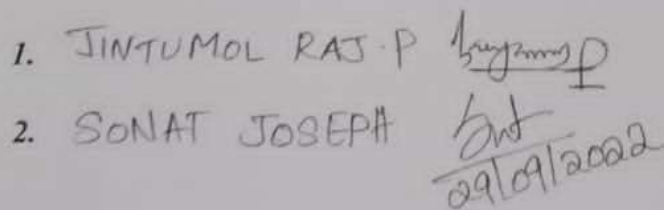 1. JINTUMOL RAJ.P
2. SONAT JOSEPH
29/09/2022